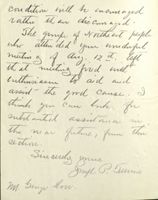 condition will be encouraged
rather than discouraged.
The group of Northeast people
who attended your wonderful
meeting of Aug. 12th left
that meeting fired with
enthusiasm to aid and
assist the good cause. I
think you can look for
substantial assistance in
the near future, from this
section.
Sincerely yours
Joseph P.
Mr. George